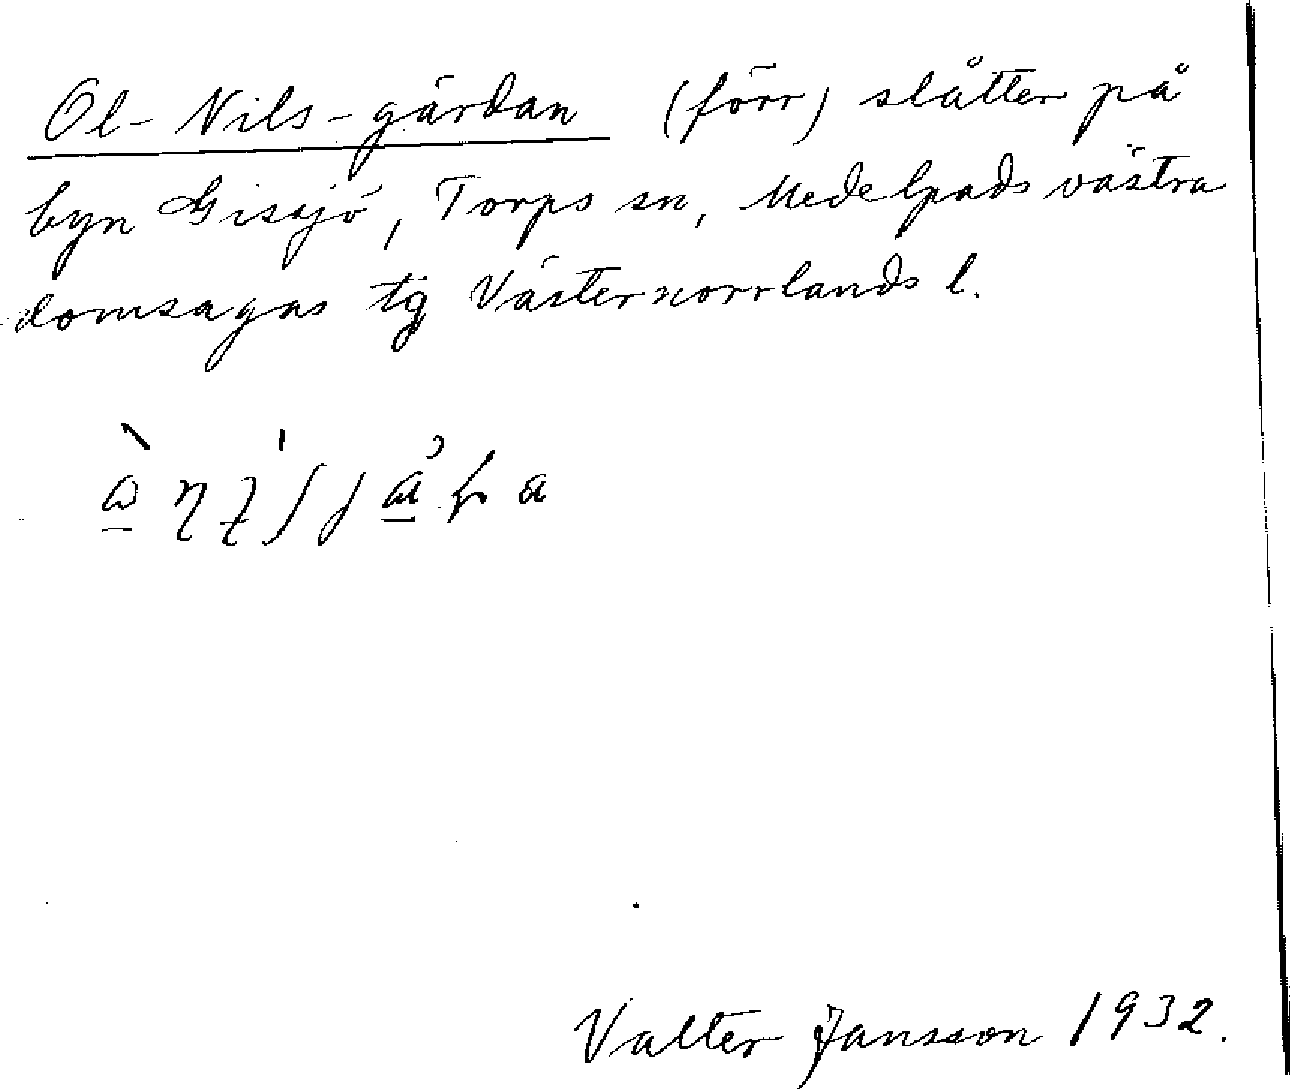 Ol-Nils-gärdan (förr) slåtter på
byn Gissjö, Torps sn, Medelpads västra
domsagas tg Västernorrlands l.
Valter Jansson 1932.